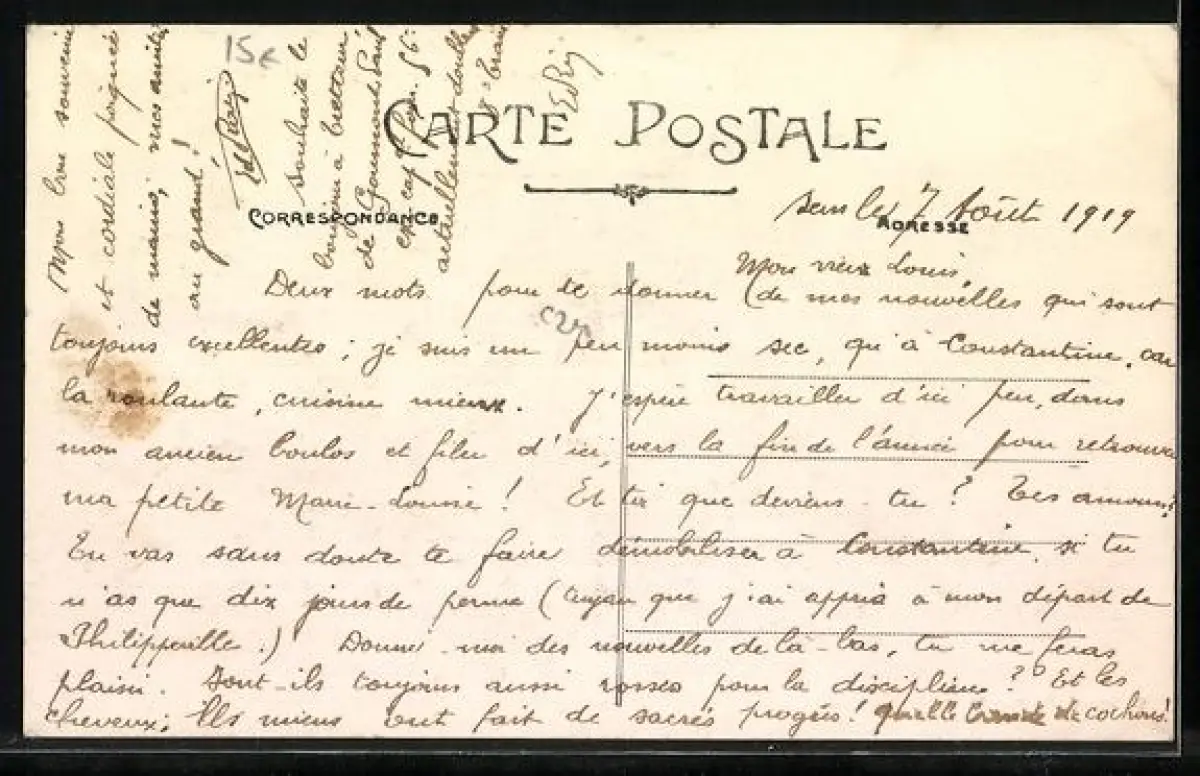 15€
CARTE POSTALE
CORRESPONDANCE
ADRESSE
7 Août 1919
Mon vieux Louis,
Deux mots pour te donner (de mes nouvelles qui sont
toujours excellentes ; je suis un peu moins sec, qu'à Constantine, car
la roulante, cuisine mieux. J'espère travailler d'ici peu, dans
mon ancien boulos et filer d'ici, vers la fin de l'année pour retrouver
ma petite Marie-Louise ! Et toi que deviens-tu ? Tes amours ?
Tu vas sans doute te faire démobiliser à Constantine, si tu
n'as que dix jours de perme (tuyau que j'ai appris à mon départ de
Philippeville.) Donne-moi des nouvelles de là-bas, tu me feras
plaisir. Sont-ils toujours aussi rosses pour la discipline ? Et les
cheveux; Les miens ont fait de sacrés progrès ! quelle bande de cochons !
Mon bon souvenir
et cordiale poignée
de mains, mes amitiés
au grand !
souhaite le
bonjour à
de Gourmand
ex cap
actuellement